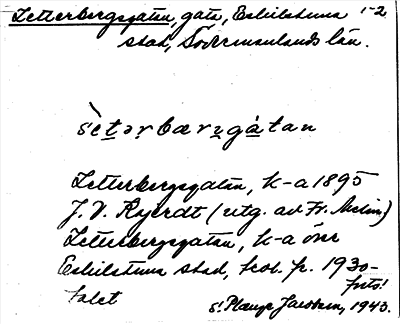 Zetterbergsgatan, gata, Eskilstuna 1-2
stad, Södermanlands län.
sètərbærᶎgátan
Zetterbergsgatan, k-a 1895
J. V. (utg. av Fr.
Zetterbergsgatan, k-a över
Eskilstuna stad, p. 1930-
talet forts!
s. Jacobson, 1943.